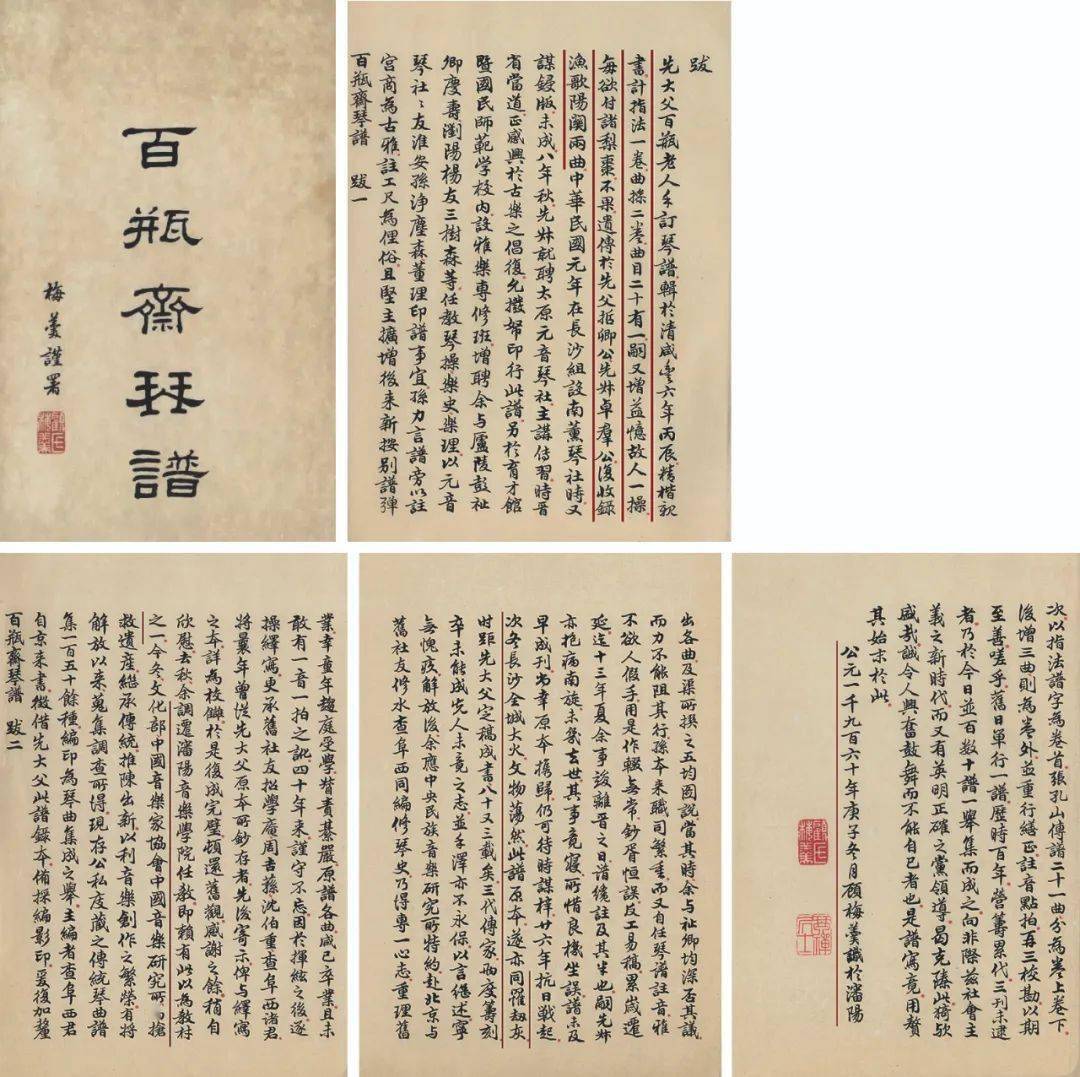 百瓶齋琴譜
梅羹謹署
跋
先大父百瓶老人手訂琴譜輯於清咸豐六年丙辰精楷親
書計指法一卷曲操二卷曲目二十有一嗣又增益憶故人一操
每欲付諸梨棗不果遺傳於先父哲卿公先叔卓羣公復收錄
漁歌陽關兩曲中華民國元年在長沙組設南薰琴社時又
謀鋟版未成八年秋先叔就聘太原元音琴社主講傳習時晋
省當道正感興於古樂之倡復允撥帑印行此譜另於育才館
暨國民師範學校内設雅樂專修班增聘余與廬陵彭祉
卿慶壽瀏陽楊友三樹森等任教琴操樂史樂理以元音
琴社々友淮安孫淨塵森董理印譜事宜孫力言譜旁以註
宮商為古雅註工尺為俚俗且堅主擴增後来新按别譜弹
百瓶齋琴譜 跋一
出各曲及渠所撰之五均圖說當其時余與祉卿均深否其議
而力不能阻其行孫本来職司繁重而又自任琴譜註音雅
不欲人假手用是作輟無常鈔胥恒誤反工易稿累歲遷
延迄十三年夏余事竣離晋之日譜纔註及其半也嗣先叔
亦抱病南旋未幾去世其事竟寢所惜良機坐誤譜未及
早成刊尚幸原本携歸仍可待時謀梓廿六年抗日戰起
次冬長沙全城大火文物蕩然此譜原本遂亦同罹劫灰
时距先大父定稿成書八十又三載矣三代傳家兩度籌刻
卒未能成先人未竟之志並手澤亦不永保以言继述寧
無愧疚解放後余應中央民族音樂研究所特約赴北京與
舊社友修水查阜西同編修琴史乃得專一心志重理舊
業幸童年趨庭受學督責綦嚴原譜各曲咸已卒業且未
敢有一音一拍之訛四十年来謹守不忘因於揮絃之後逐
操繹寫更承舊社友招學庵周吉蓀沈伯重查阜西諸君
將曩年曾從先大父原本所鈔存者先後寄示俾與繹寫
之本詳為校讎於是復成完璧頓還舊觀感謝之餘稍自
欣慰去秋余調遷瀋陽音樂學院任教即賴有此以為教材
之一今冬文化部中國音樂家協會中國音樂研究所為搶
救遺產繼承傳統推陳出新以利音樂創作之繁榮有將
解放以来蒐集調查所得現存公私庋藏之傳統琴曲譜
集一百五十餘種編印為琴曲集成之舉主編者查阜西君
自京来書徵借先大父此譜錄本備採編影印爰復加釐
百瓶齋琴譜 跋二
次以指法譜字為卷首張孔山傳譜二十一曲分為卷上卷下
後增三曲則為卷外並重行繕正註音點拍再三校勘以期
至善嗟乎舊日單行一譜歷時百年營籌累代三刊未逮
者乃於今日並百數十譜一舉集而成之向非際兹社會主
義之新時代而又有英明正確之黨領導曷克臻此猗歟
盛哉誠令人興奮鼓舞而不能自已者也是譜寫竟用贅
其始末於此
公元一千九百六十年庚子冬月顧梅羹識於瀋陽